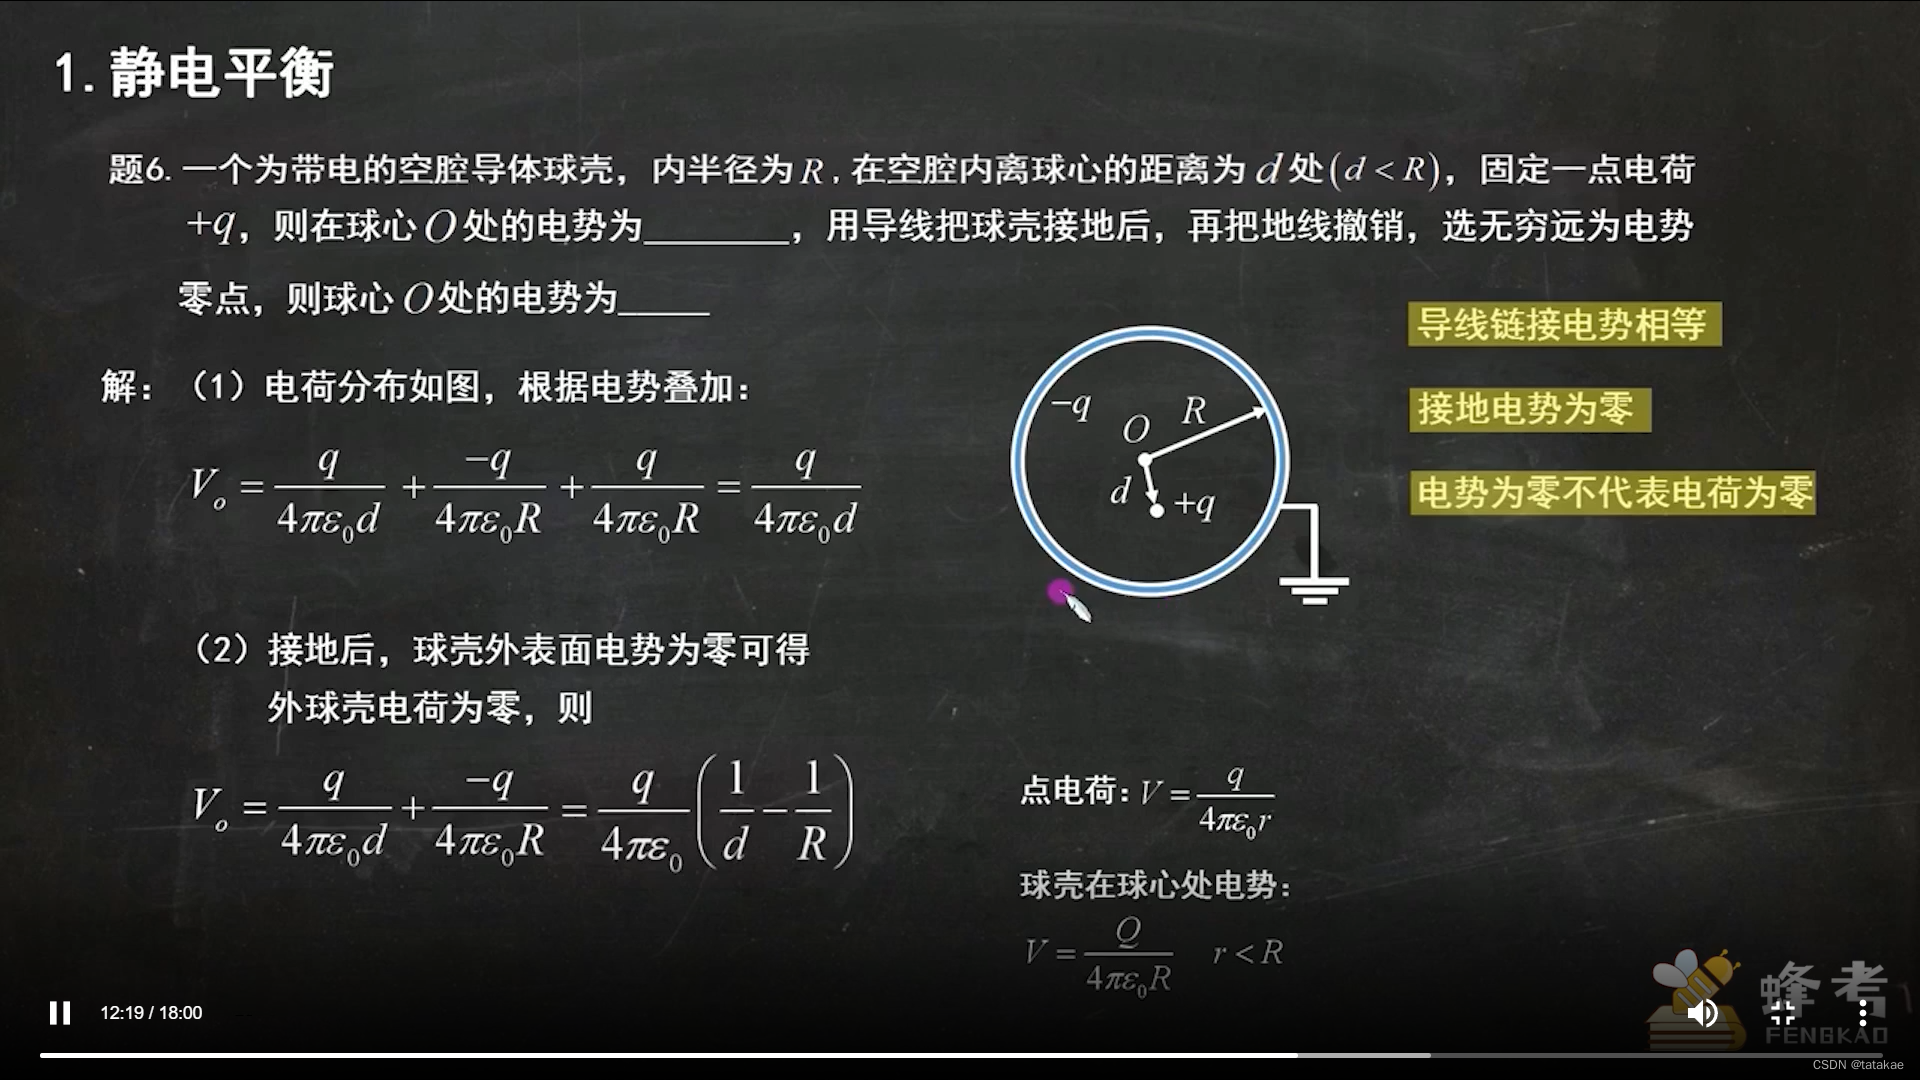 1.静电平衡
题6.一个为带电的空腔导体球壳，内半径为R，在空腔内离球心的距离为d处(d<R)，固定一点电荷
+q，则在球心O处的电势为________，用导线把球壳接地后，再把地线撤销，选无穷远为电势
零点，则球心O处的电势为_____
导线链接电势相等
接地电势为零
电势为零不代表电荷为零
解：（1）电荷分布如图，根据电势叠加：
V_o = q/(4πε_0d) + -q/(4πε_0R) + q/(4πε_0R) = q/(4πε_0d)
-q
O
R
d
+q
（2）接地后，球壳外表面电势为零可得
外球壳电荷为零，则
V_o = q/(4πε_0d) + -q/(4πε_0R) = q/(4πε_0) (1/d - 1/R)
点电荷：V = q/(4πε_0r)
球壳在球心处电势：
V = Q/(4πε_0R) r<R
12:19 / 18:00
蜂考
FENGKAO
CSDN @tatakae